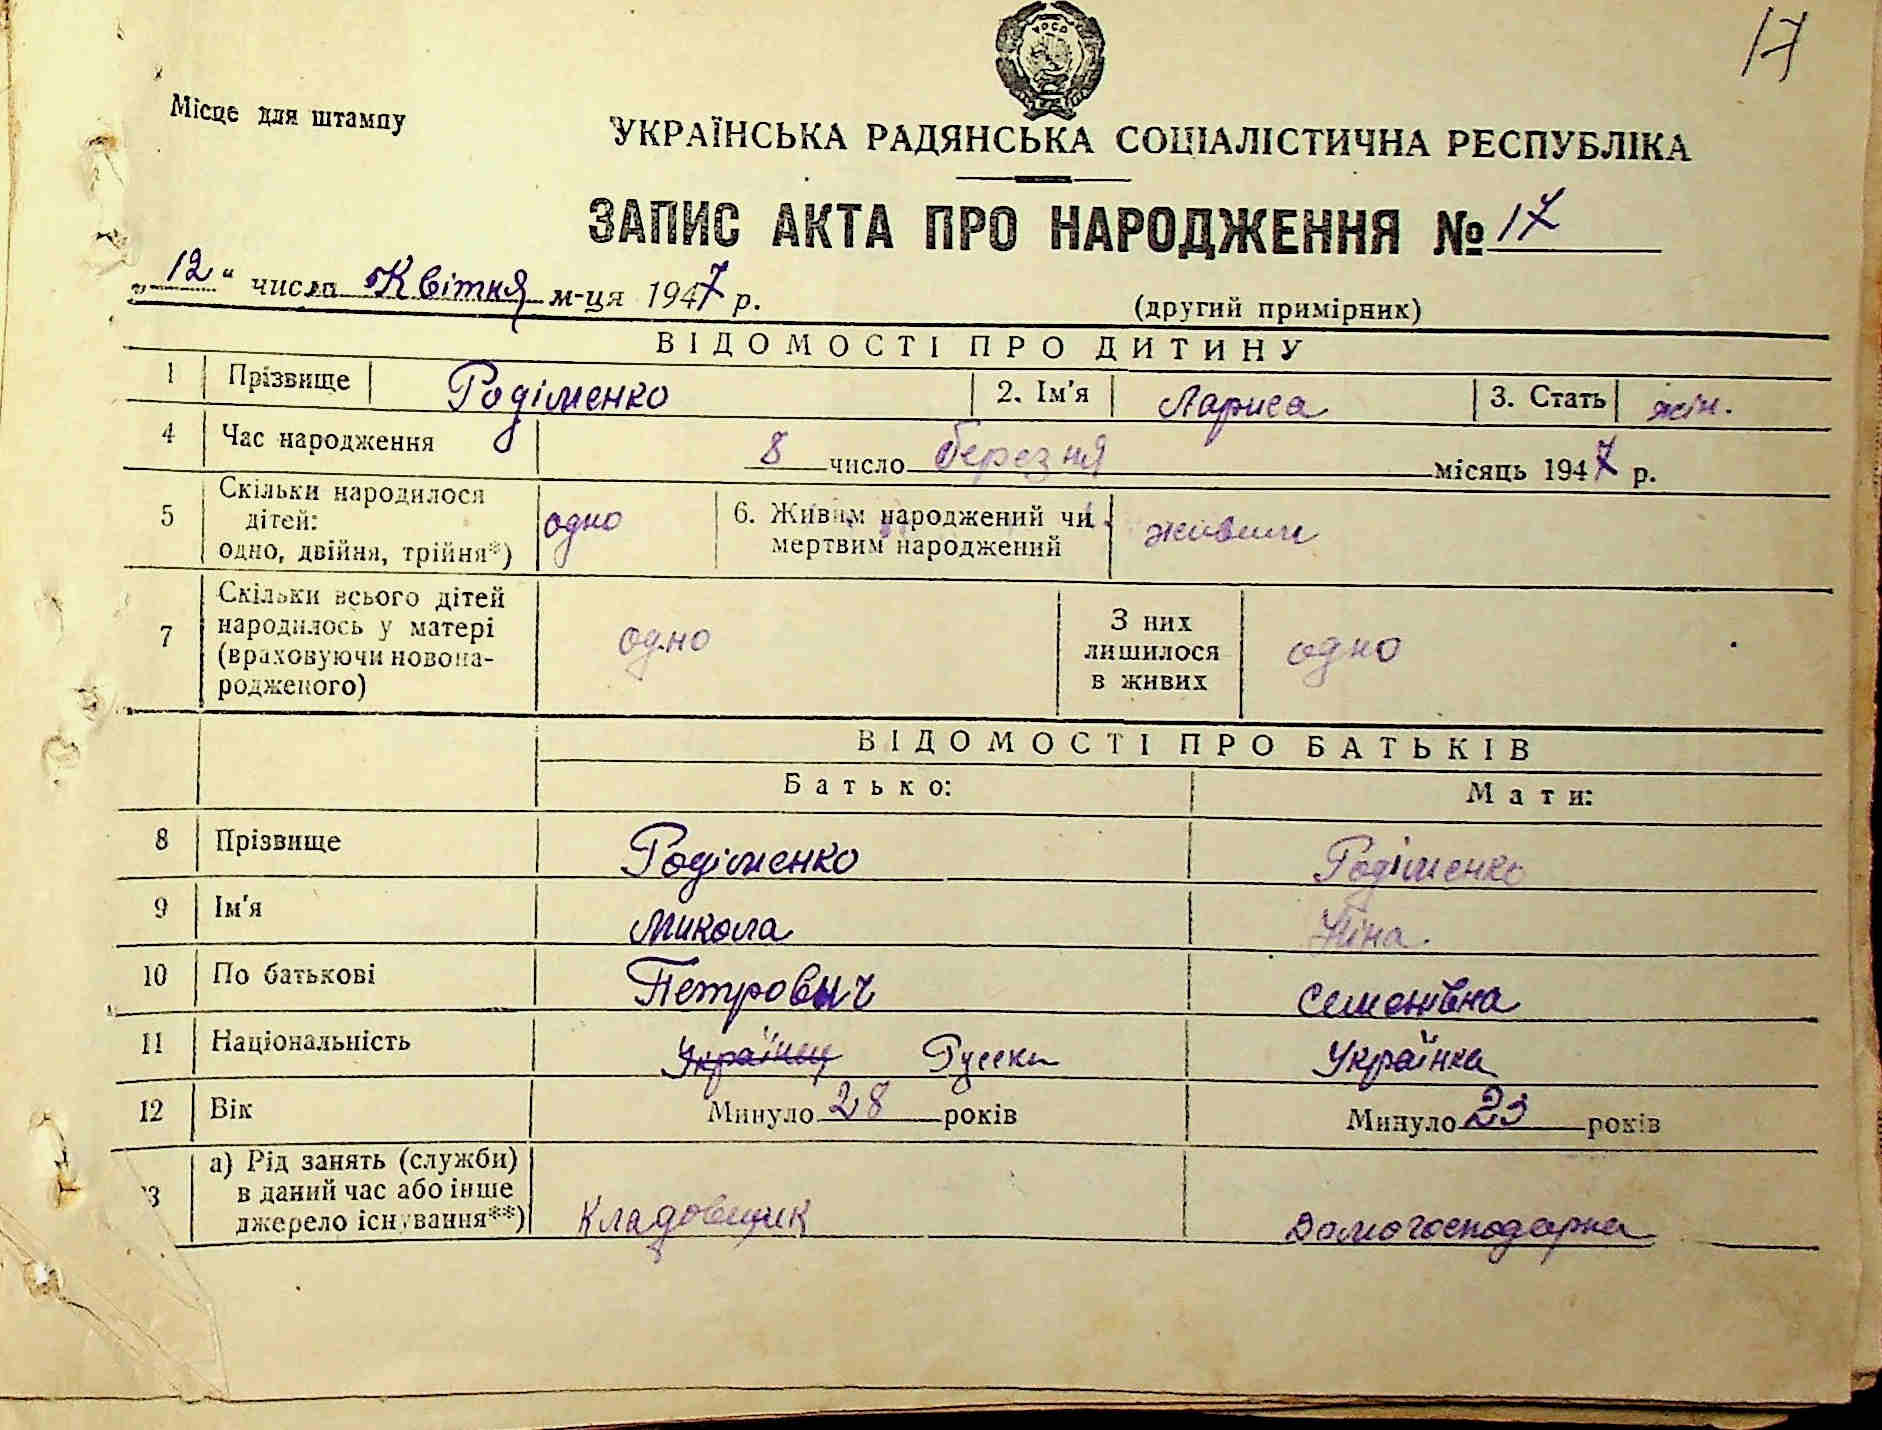 17
УРСР
Місце для штампу
УКРАЇНСЬКА РАДЯНСЬКА СОЦІАЛІСТИЧНА РЕСПУБЛІКА
ЗАПИС АКТА ПРО НАРОДЖЕННЯ № 17
„12“ числа Квітня м-ця 1947 р.
(другий примірник)
ВІДОМОСТІ ПРО ДИТИНУ
1 Прізвище Родіменко 2. Ім'я Лариса 3. Стать жін.
4 Час народження 8 число березня місяць 1947 р.
5 Скільки народилося
дітей:
одно, двійня, трійня*) одно
6. Живим народжений чи
мертвим народжений живим
7 Скільки всього дітей
народилось у матері
(враховуючи новона-
родженого) одно
З них
лишилося
в живих одно
ВІДОМОСТІ ПРО БАТЬКІВ
Батько: Мати:
8 Прізвище Родіменко Родіменко
9 Ім'я Микола Ніна.
10 По батькові Петровыч Семенівна
11 Національність Українец Русски Українка
12 Вік Минуло 28 років Минуло 23 років
3 а) Рід занять (служби)
в даний час або інше
джерело існування**) Кладовщик Домогосподарка